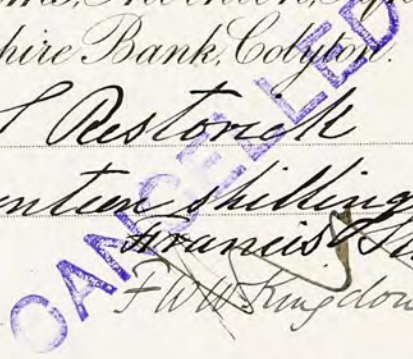 hire Bank, Colyton.
Restorick
nteen shilling
Francis
F W W Kingdon
CANCELLED